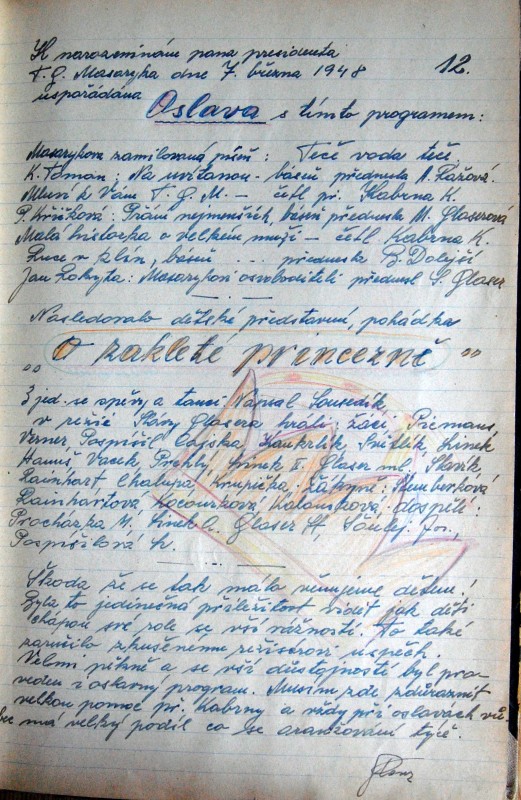 K narozeninám pana presidenta
T. G. Masaryka dne 7. března 1948 12.
uspořádána
Oslava s tímto programem:
Masarykova zamilovaná píseň: Teče voda teče
K. Toman: Na uvítanou - báseň přednesla A.
Mluví k Vám T. G. M. — četl př. Kabrna K.
P. Křičková: Přání nejmenších, báseň přednesla M. Glaserová
Malá historka o velkém muži — četl Kabrna K.
Ruce v klín, báseň ... přednesla B. Dolejší
Jan Rokyta: Masarykovi osvoboditeli přednesl S. Glaser
Následovalo dětské představení, pohádka
„O zakleté princezně"
3 jed. se zpěvy a tanci Napsal Sousedík,
v režii Slávy Glasera hráli: žáci,
Verner Pospíšil Koukolík, Hinek
Hanuš Vacek, Hinek I. Glaser ml., Slavík,
Rainhart Chalupa Krupička. Žákyně:
Rainhartová Kocourková, dospělí:
Procházka Hinek Glaser St, Jos.,
Pospíšilová
Škoda že se tak málo věnujeme dětem!
Byla to jedinečná příležitost vidět jak děti
chápou své role se vší vážností. To také
zaručilo zkušenému režisérovi úspěch.
Velmi pěkně a se vší důstojností byl pro-
veden i oslavný program. Musím zde zdůraznit
velkou pomoc př. Kabrny a vždy při oslavách
má velký podíl co se aranžování týče.